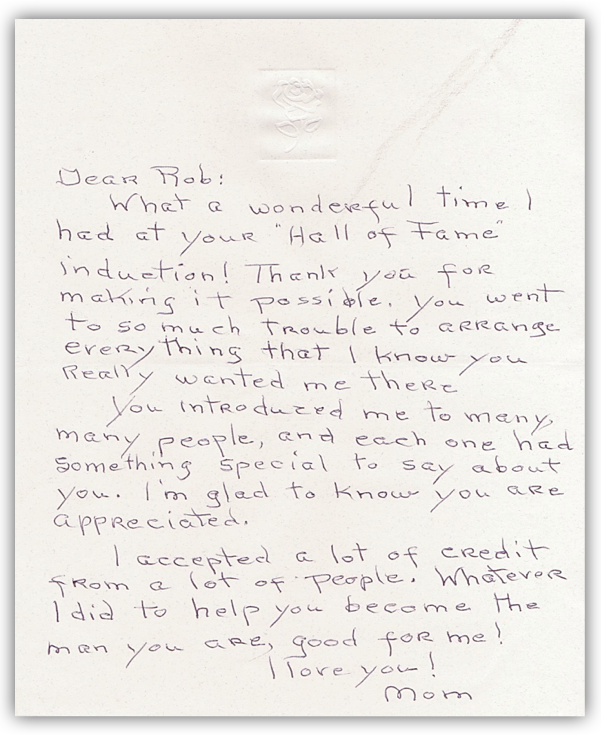 Dear Rob:
What a wonderful time I
had at your "Hall of Fame"
induction! Thank you for
making it possible. You went
to so much trouble to arrange
everything that I know you
really wanted me there
You introduced me to many,
many people, and each one had
something special to say about
you. I'm glad to know you are
appreciated.
I accepted a lot of credit
from a lot of people. Whatever
I did to help you become the
man you are, good for me!
I love you!
Mom